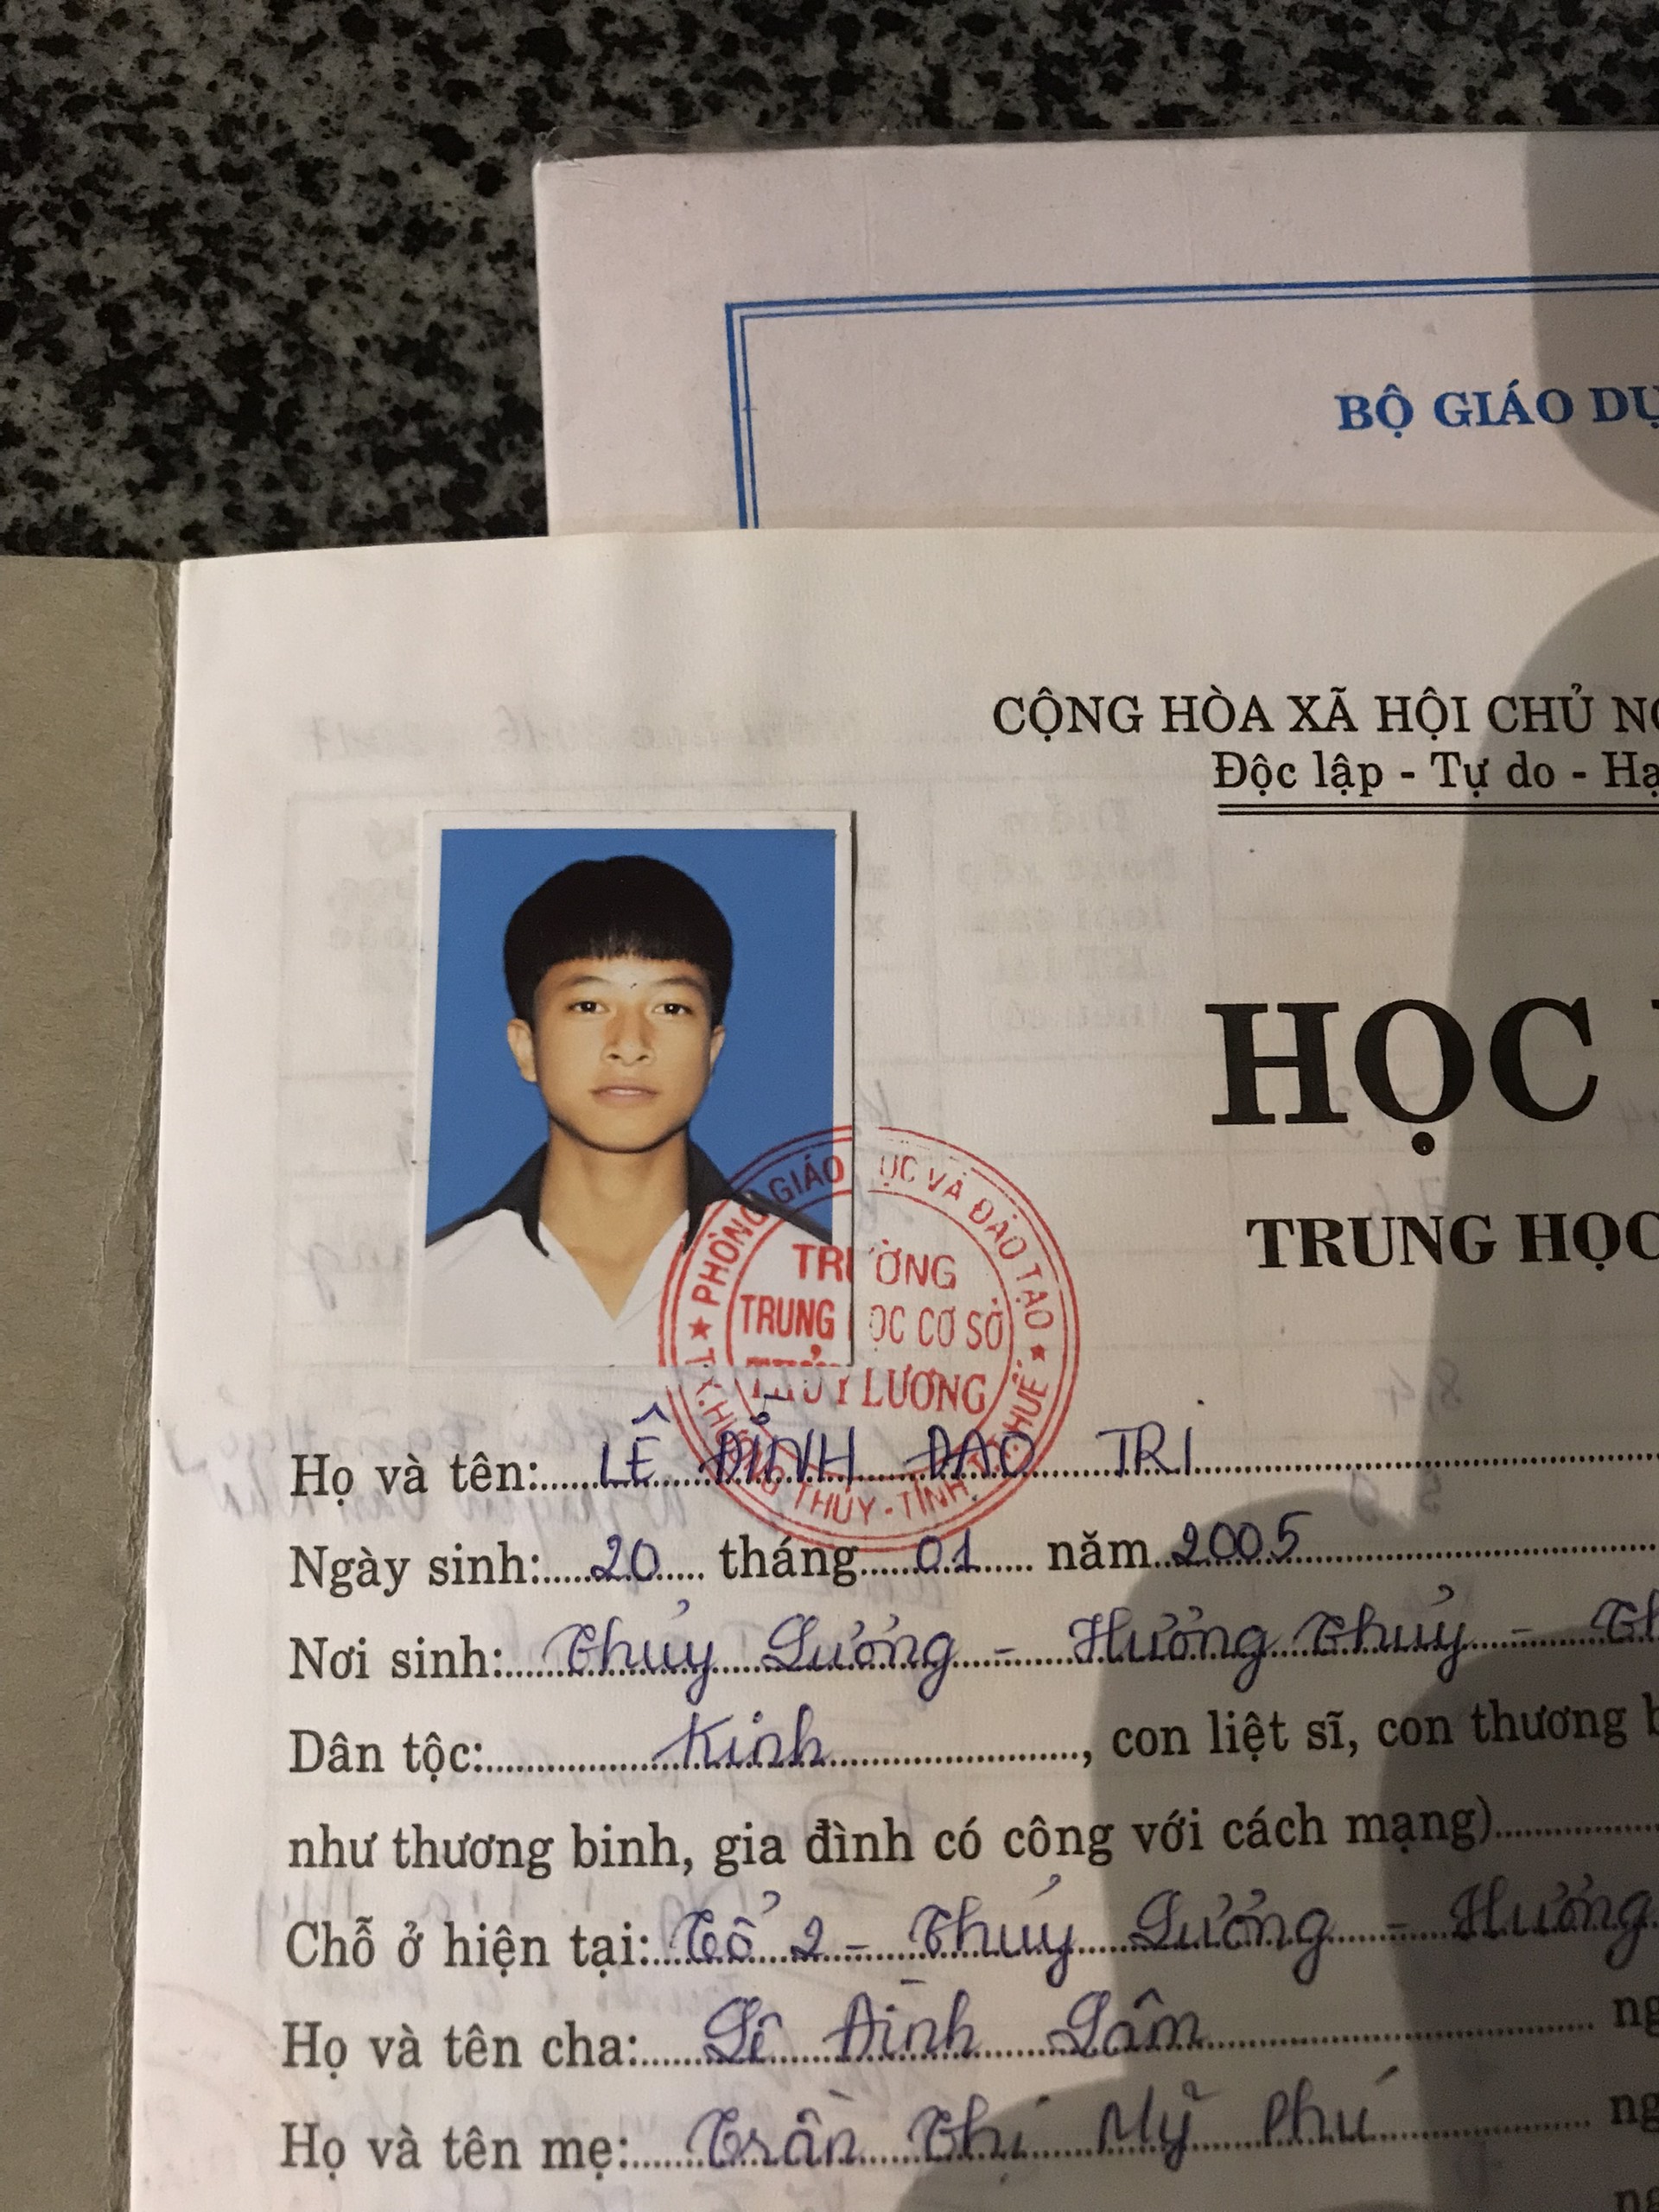 BỘ GIÁO DỤ
CỘNG HÒA XÃ HỘI CHỦ NG
Độc lập - Tự do - Hạ
HỌC
TRUNG HỌC
PHÒNG GIÁO ỤC VÀ ĐÀO TẠO
TRƯỜNG
TRUNG HỌC CƠ SỞ
THỦY LƯƠNG
T.X.HƯƠNG THỦY-TỈNH T.T.HUẾ
Họ và tên: LÊ ĐÌNH ĐAO TRI
Ngày sinh: 20 tháng 01 năm 2005
Nơi sinh: Thủy Lương - Hương Thủy - Th
Dân tộc: Kinh, con liệt sĩ, con thương b
như thương binh, gia đình có công với cách mạng)
Chỗ ở hiện tại: Tổ 2 - Thủy Lương - Hương
Họ và tên cha: Lê Đình Lâm ng
Họ và tên mẹ: Trần Thị Mỹ Phú ng